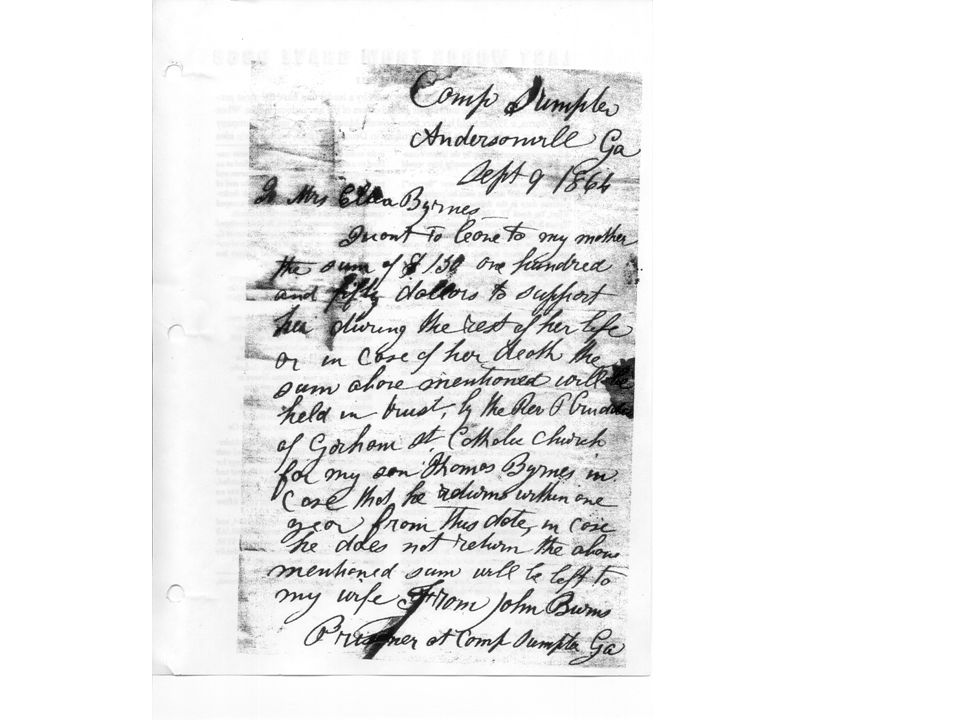 Camp Sumpter
Andersonvill Ga
Sept 9 1864
To Mrs Ellen Byrnes
I want to leave to my mother
the sum of $150 one hundred
and fifty dollars to support
her during the rest of her life
or in case of her death the
sum above mentioned will be
held in trust, by the Rev P
of Gorham St. Catholic Church
for my son Thomas Byrnes in
case that he returns within one
year from this date, in case
he does not return the above
mentioned sum will be left to
my wife From John Burns
Prisoner at Camp Sumpter Ga